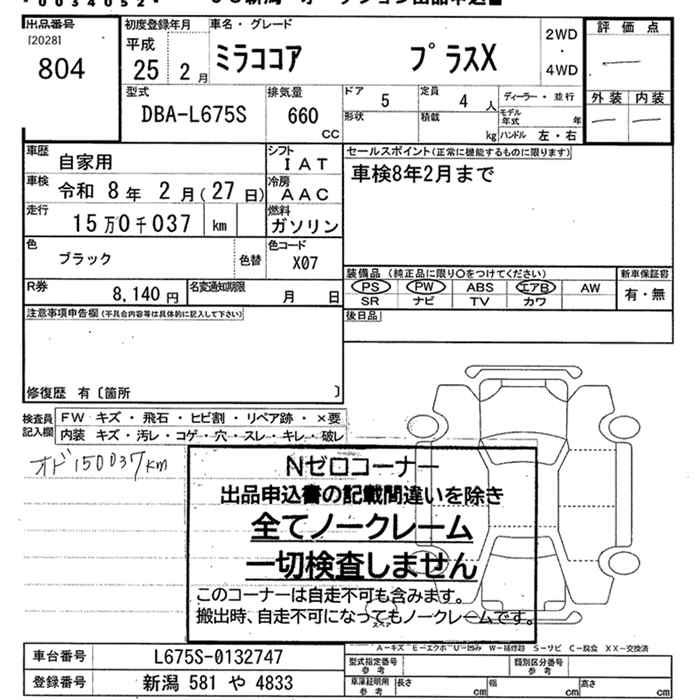 出品番号
[2028]
804
初度登録年月
平成
25 2月
車名・グレード
ミラココア プラスX
2WD
・
4WD
評価点
外装 内装
型式
DBA-L675S
排気量
660
cc
ドア
5
定員
4人
ディーラー・並行
形状
積載
kg
モデル年式 年
ハンドル 左・右
車歴
自家用
シフト
IAT
セールスポイント(正常に機能するものに限ります)
車検8年2月まで
車検
令和 8年 2月(27日)
冷房
AAC
走行
15万0千037 km
燃料
ガソリン
色
ブラック
色替
色コード
X07
R券
8,140円
名変通知期限
月 日
装備品(純正品に限り○をつけてください)
新車保証書
PS PW ABS エアB AW
有・無
SR ナビ TV カワ
注意事項申告欄(不具合内容等は具体的に記入して下さい)
後日品
修復歴 有〔箇所 〕
検査員記入欄
FW キズ・飛石・ヒビ割・リペア跡・×要
内装 キズ・汚レ・コゲ・穴・スレ・キレ・破レ
オド150037km
Nゼロコーナー
出品申込書の記載間違いを除き
全てノークレーム
一切検査しません
このコーナーは自走不可も含みます。
搬出時、自走不可になってもノークレームです。
A-キズ E-エクボ U-凹み W-補修跡 S-サビ C-腐食 XX-交換済
車台番号
L675S-0132747
型式指定番号
参考
類別区分番号
参考
登録番号
新潟 581 や 4833
車庫証明用
参考
長さ cm
幅 cm
高さ cm